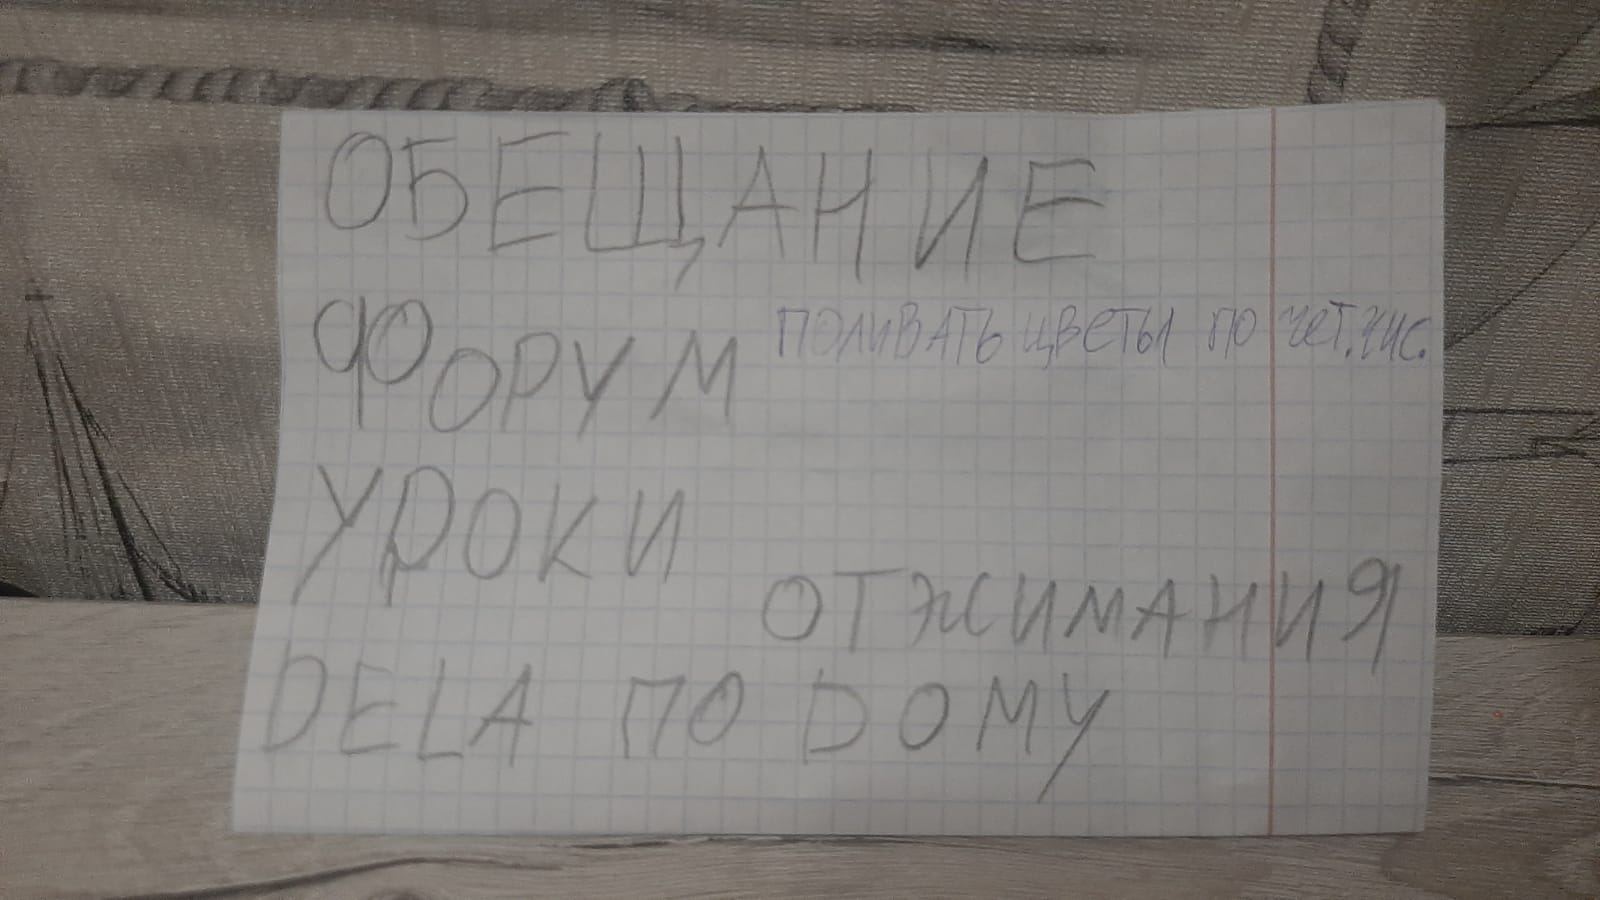 ОБЕЩАНИЕ
ФОРУМ
ПОЛИВАТЬ ЦВЕТЫ ПО ЧЕТ.ЧИС.
УРОКИ
ОТЖИМАНИЯ
DELA ПО DОМУ